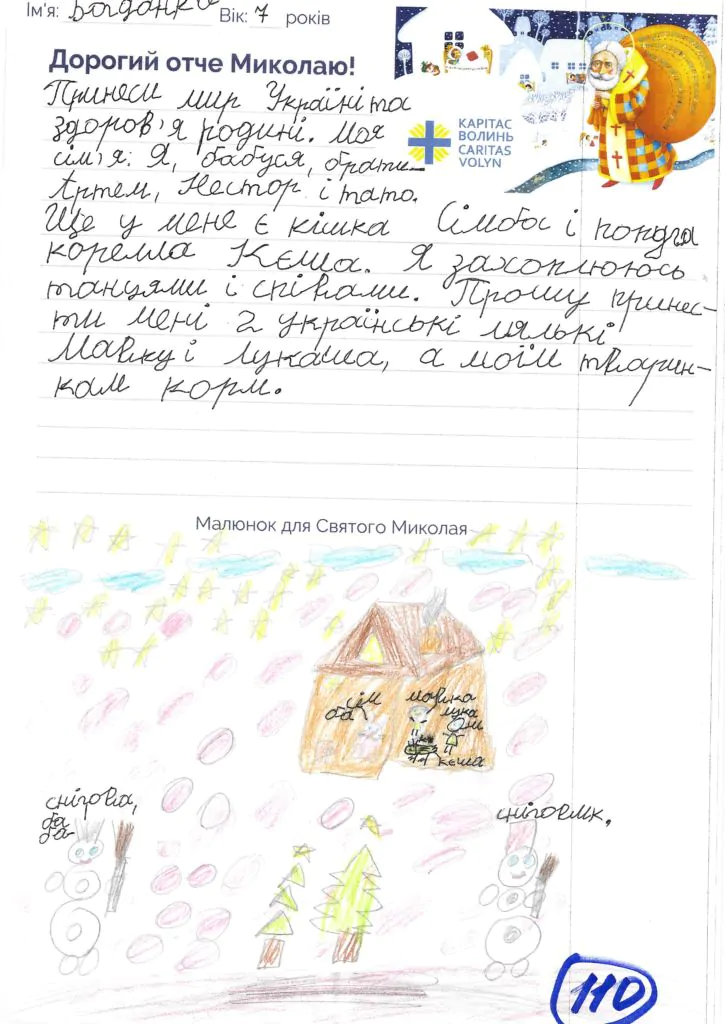 Ім'я: Богданка Вік: 7 років
Дорогий отче Миколаю!
Принеси мир Україні та
здоров'я родині. Моя
сім'я: Я, бабуся, брати–
Артем, Нестор і тато.
Ще у мене є кішка Сімба і папуга
корелла Кєша. Я захоплююсь
танцями і співами. Прошу принес-
ти мені 2 українські лялькі
Мавку і Лукаша, а моїм тварин-
кам корм.
КАРІТАС
ВОЛИНЬ
CARITAS
VOLYN
Малюнок для Святого Миколая
сім
ба
мавка
лука
ш
кєша
снігова,
ба
ба
сніговик,
110